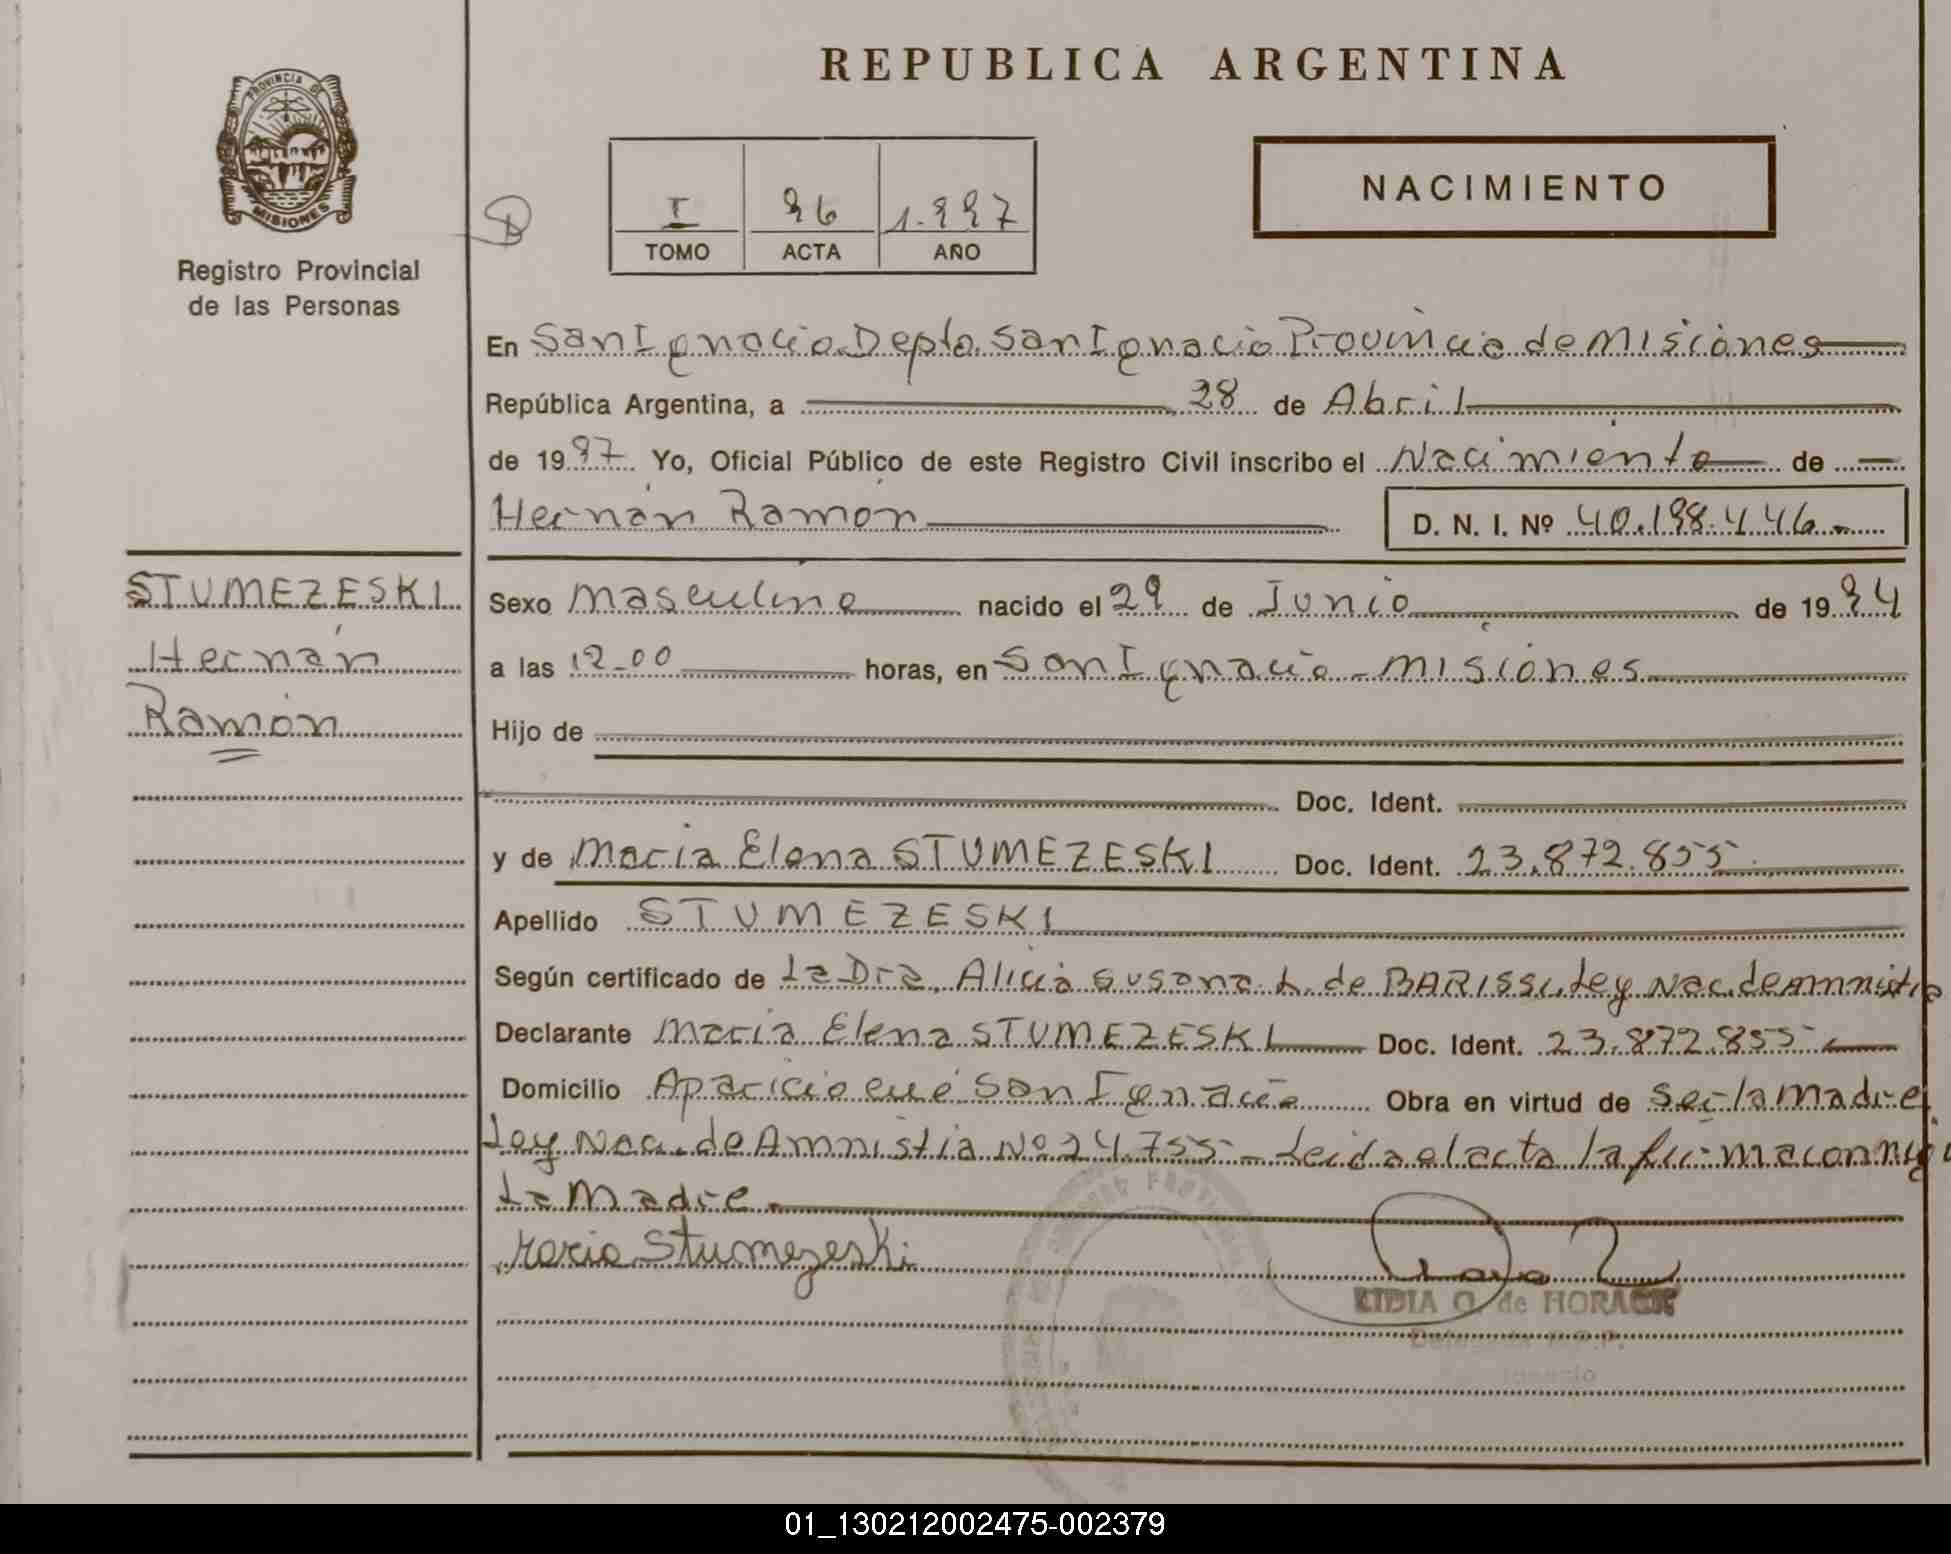 REPUBLICA ARGENTINA
PROVINCIA DE
MISIONES
Registro Provincial
de las Personas
I 96 1.997
TOMO ACTA AÑO
NACIMIENTO
En San Ignacio Depto. San Ignacio Provincia de Misiones
República Argentina, a 28 de Abril
de 1997 Yo, Oficial Público de este Registro Civil inscribo el Nacimiento de
Hernán Ramón D. N. I. Nº 40.198.446.-
STUMEZESKI
Hernán
Ramón
Sexo Masculino nacido el 29 de Junio de 1994
a las 12-00 horas, en San Ignacio - Misiones
Hijo de
Doc. Ident.
y de Maria Elena STUMEZESKI Doc. Ident. 23.872.855
Apellido STUMEZESKI
Según certificado de La Dra. Alicia Susana L. de BARISSI, Ley Nac. de Amnistia
Declarante Maria Elena STUMEZESKI Doc. Ident. 23.872.855
Domicilio Aparicio cué San Ignacio Obra en virtud de Ser la Madre
Ley Nac. de Amnistia Nº 24.755 - Leida el acta la firma conmigo
La Madre
Maria Stumezeski
LIDIA O. de HORACK
01_130212002475-002379